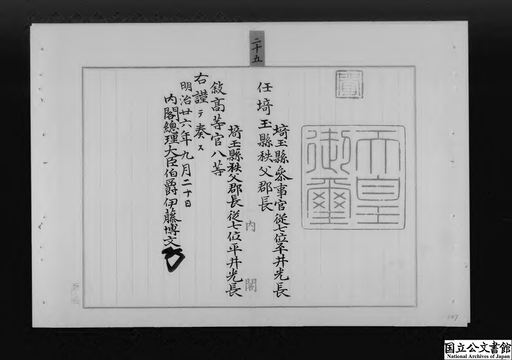 二十五
天皇御璽
埼玉縣参事官從七位平井光長
任埼玉縣秩父郡長
埼玉縣秩父郡長從七位平井光長
敍高等官八等
右謹テ奏ス
明治廿六年九月二十日
内閣總理大臣伯爵伊藤博文
内閣
国立公文書館
National Archives of Japan